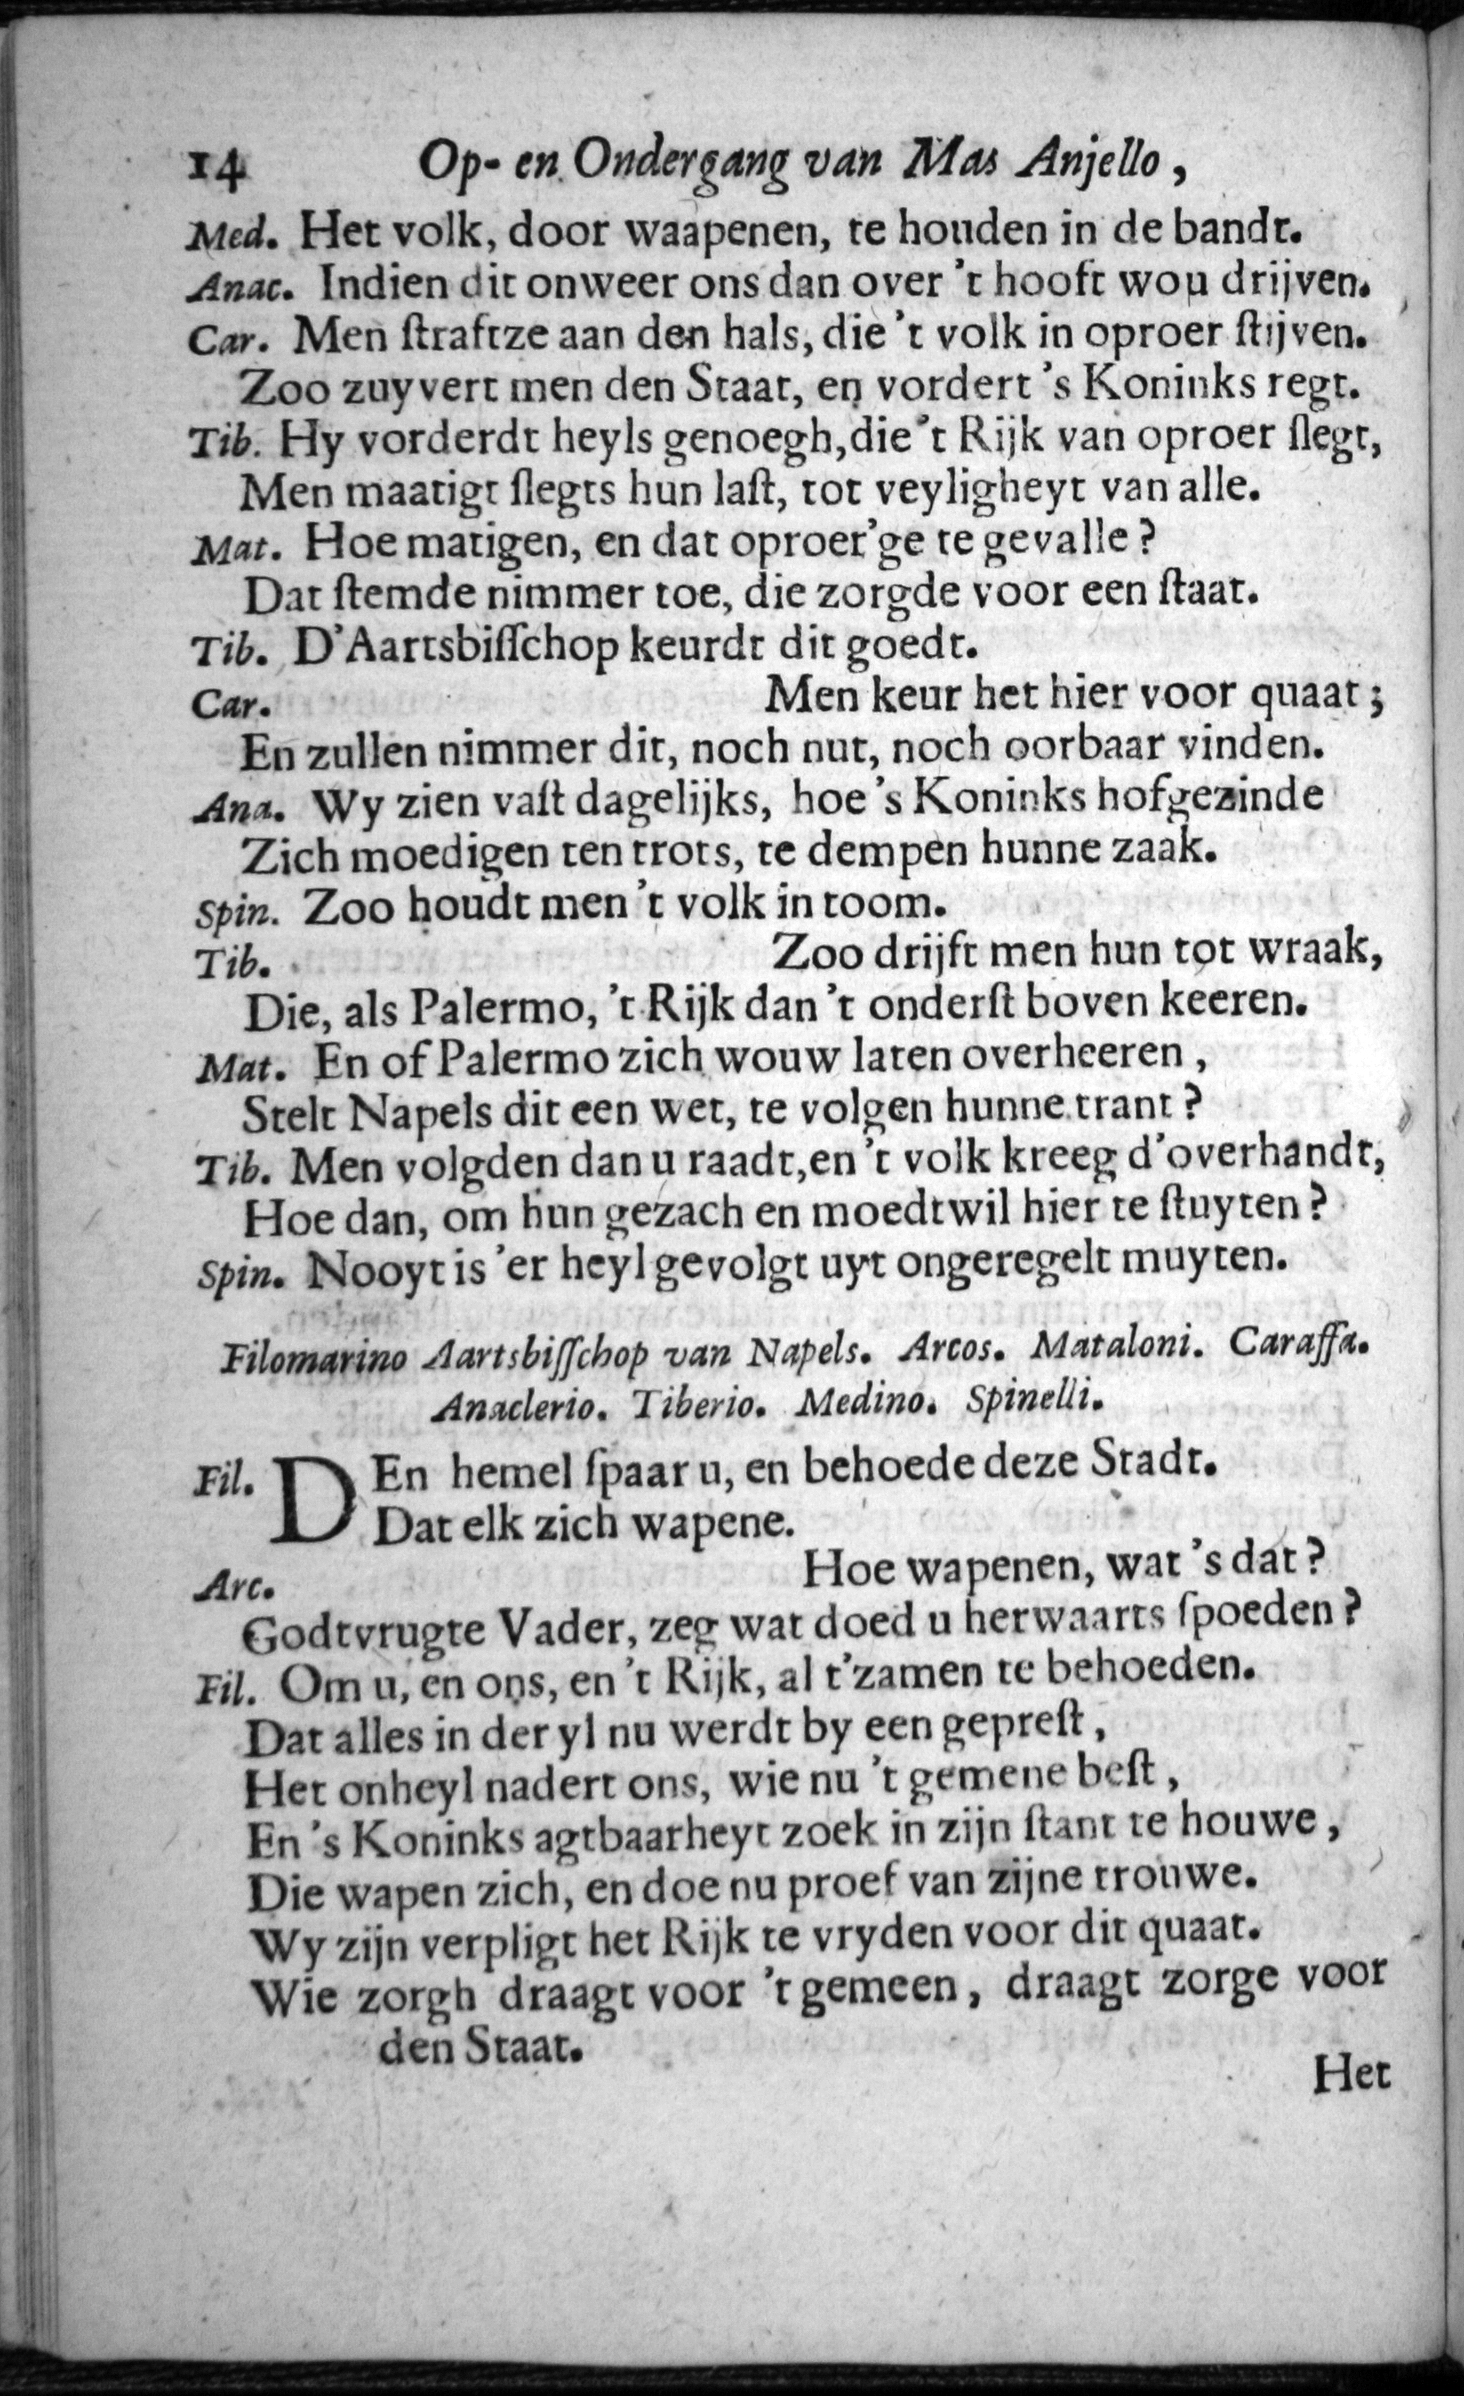 14 Op- en Ondergang van Mas Anjello,
Med. Het volk, door waapenen, te houden in de bandt.
Anac. Indien dit onweer ons dan over 't hooft wou drijven.
Car. Men ſtraftze aan den hals, die 't volk in oproer ſtijven.
Zoo zuyvert men den Staat, en vordert 's Koninks regt.
Tib. Hy vorderdt heyls genoegh, die 't Rijk van oproer ſlegt,
Men maatigt ſlegts hun laſt, tot veyligheyt van alle.
Mat. Hoe matigen, en dat oproer'ge te gevalle?
Dat ſtemde nimmer toe, die zorgde voor een ſtaat.
Tib. D'Aartsbiſſchop keurdt dit goedt.
Car. Men keur het hier voor quaat;
En zullen nimmer dit, noch nut, noch oorbaar vinden.
Ana. Wy zien vaſt dagelijks, hoe 's Koninks hofgezinde
Zich moedigen ten trots, te dempen hunne zaak.
Spin. Zoo houdt men 't volk in toom.
Tib. Zoo drijft men hun tot wraak,
Die, als Palermo, 't Rijk dan 't onderſt boven keeren.
Mat. En of Palermo zich wouw laten overheeren,
Stelt Napels dit een wet, te volgen hunne trant?
Tib. Men volgden dan u raadt, en 't volk kreeg d'overhandt,
Hoe dan, om hun gezach en moedtwil hier te ſtuyten?
Spin. Nooyt is 'er heyl gevolgt uyt ongeregelt muyten.
Filomarino Aartsbiſſchop van Napels. Arcos. Mataloni. Caraffa.
Anaclerio. Tiberio. Medino. Spinelli.
Fil. DEn hemel ſpaar u, en behoede deze Stadt.
Dat elk zich wapene.
Arc. Hoe wapenen, wat 's dat?
Godtvrugte Vader, zeg wat doed u herwaarts ſpoeden?
Fil. Om u, en ons, en 't Rijk, al t'zamen te behoeden.
Dat alles in der yl nu werdt by een gepreſt,
Het onheyl nadert ons, wie nu 't gemene beſt,
En 's Koninks agtbaarheyt zoek in zijn ſtant te houwe,
Die wapen zich, en doe nu proef van zijne trouwe.
Wy zijn verpligt het Rijk te vryden voor dit quaat.
Wie zorgh draagt voor 't gemeen, draagt zorge voor
den Staat.
Het